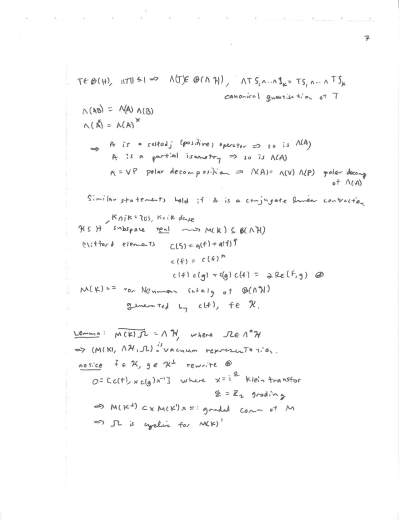 7
T ∈ B(H), ||T|| ≤ 1 ⇒ Λ(T) ∈ B(ΛH), ΛT ξ₁∧...∧ξₖ = Tξ₁∧...∧Tξₖ
canonical quantisation of T
Λ(AB) = Λ(A) Λ(B)
Λ(A*) = Λ(A)*
⇒ A is a selfadj (positive) operator ⇒ so is Λ(A)
A is a partial isometry ⇒ so is Λ(A)
A = VP polar decomposition ⇒ Λ(A) = Λ(V) Λ(P) polar decomp
of Λ(A)
Similar statements hold if A is a conjugate linear contraction
K∩iK = {0}, K+iK dense
K ≤ H subspace real ⇝ M(K) ⊆ B(ΛH)
Clifford elements c(f) = a(f) + a(f)*
c(f) = c(f)*
c(f) c(g) + c(g) c(f) = 2 Re(f,g) ⊛
M(K) := von Neumann subalg of B(ΛH)
generated by c(f), f ∈ K.
Lemma: M(K)Ω = ΛH, where Ω ∈ Λ⁰H
⇒ (M(K), ΛH, Ω) is vacuum representation.
notice f ∈ K, g ∈ K⊥ rewrite ⊛
0 = [c(f), x c(g) x⁻¹] where x = i Klein transfor
= Z₂ grading
⇒ M(K⊥) ⊂ x M(K)' x =: graded comm of M
⇒ Ω is cyclic for M(K)'